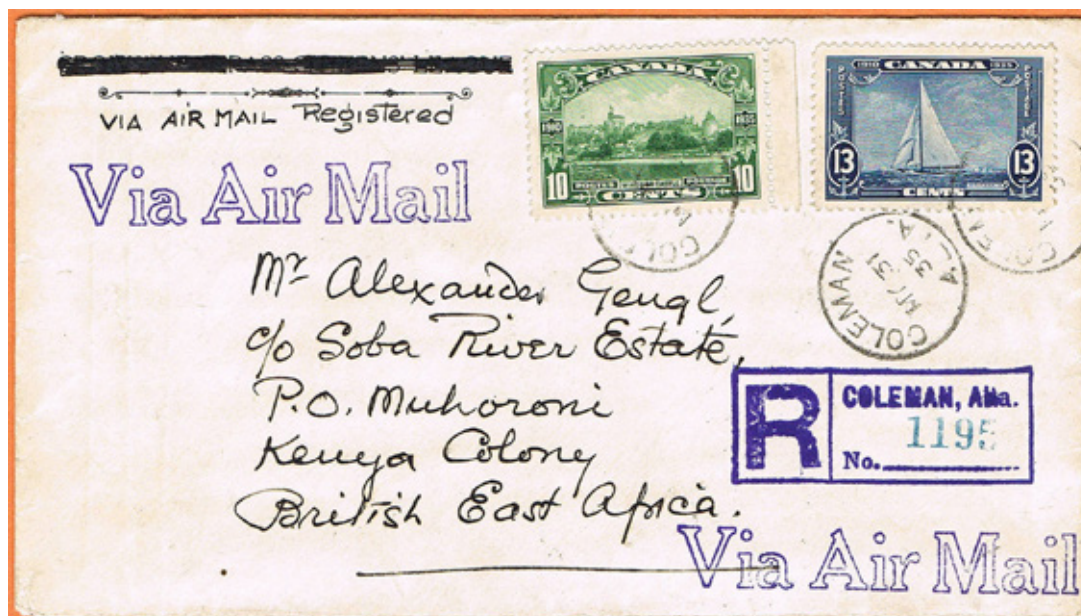 VIA AIR MAIL Registered
Via Air Mail
CANADA
1910 1935
10 10
CENTS
1910 CANADA 1935
POSTES POSTAGE
13 13
CENTS
COLEMAN
31
35
ALTA.
Mr Alexander Gengl,
c/o Soba River Estate,
P.O. Muhoroni
Kenya Colony
British East Africa.
R
COLEMAN, Alta.
No. 1195
Via Air Mail